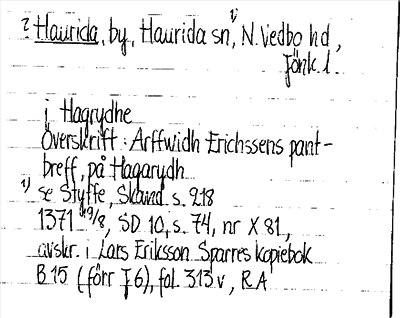 ? Haurida, by, Haurida sn,¹⁾ N. Vedbo hd,
Jönk. l.
i Hagrydhe
Överskrift: Arffwidh Erichssens pant-
breff, på Hagarydh
¹⁾ se Styffe, Skand. s. 218
1371 19/8, SD 10, s. 74, nr X 81,
avskr. i Lars Eriksson Sparres kopiebok
B 15 (förr F 6), fol. 313 v, RA